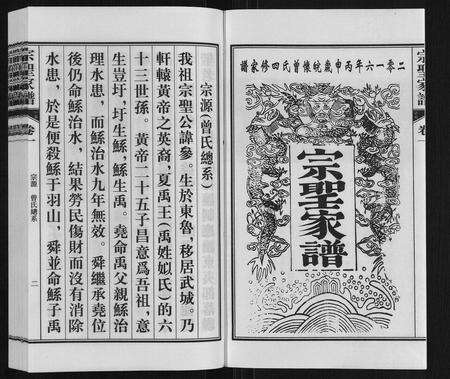 二零一六年丙申歲皖懷曾氏四修家譜
宗聖家譜
宗聖家譜
卷一
宗源(曾氏總系)
我祖宗聖公諱參。生於東魯，移居武城。乃
軒轅黃帝之英裔，夏禹王(禹姓姒氏)的六
十三世孫。黃帝二十五子昌意爲吾祖，意
生豈圩，圩生鯀，鯀生禹。堯命禹父親鯀治
理水患，而鯀治水九年無效。舜繼承堯位
後仍命鯀治水，結果勞民傷財而沒有消除
水患，於是便殺鯀于羽山，舜並命鯀子禹
宗聖家譜
卷一
宗源
曾氏總系
二